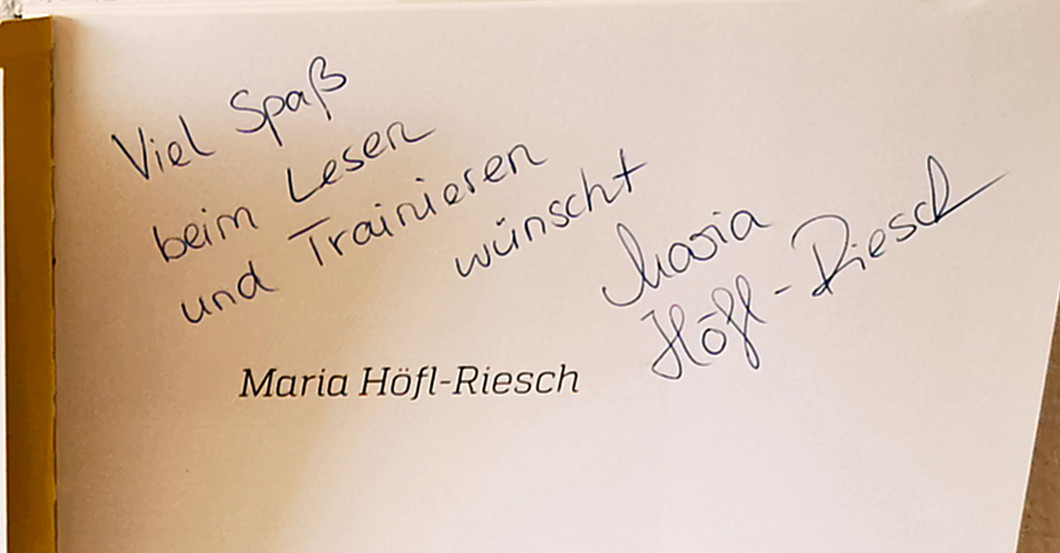 Viel Spaß
beim Lesen
und Trainieren
wünscht
Maria
Höfl-Riesch
Maria Höfl-Riesch